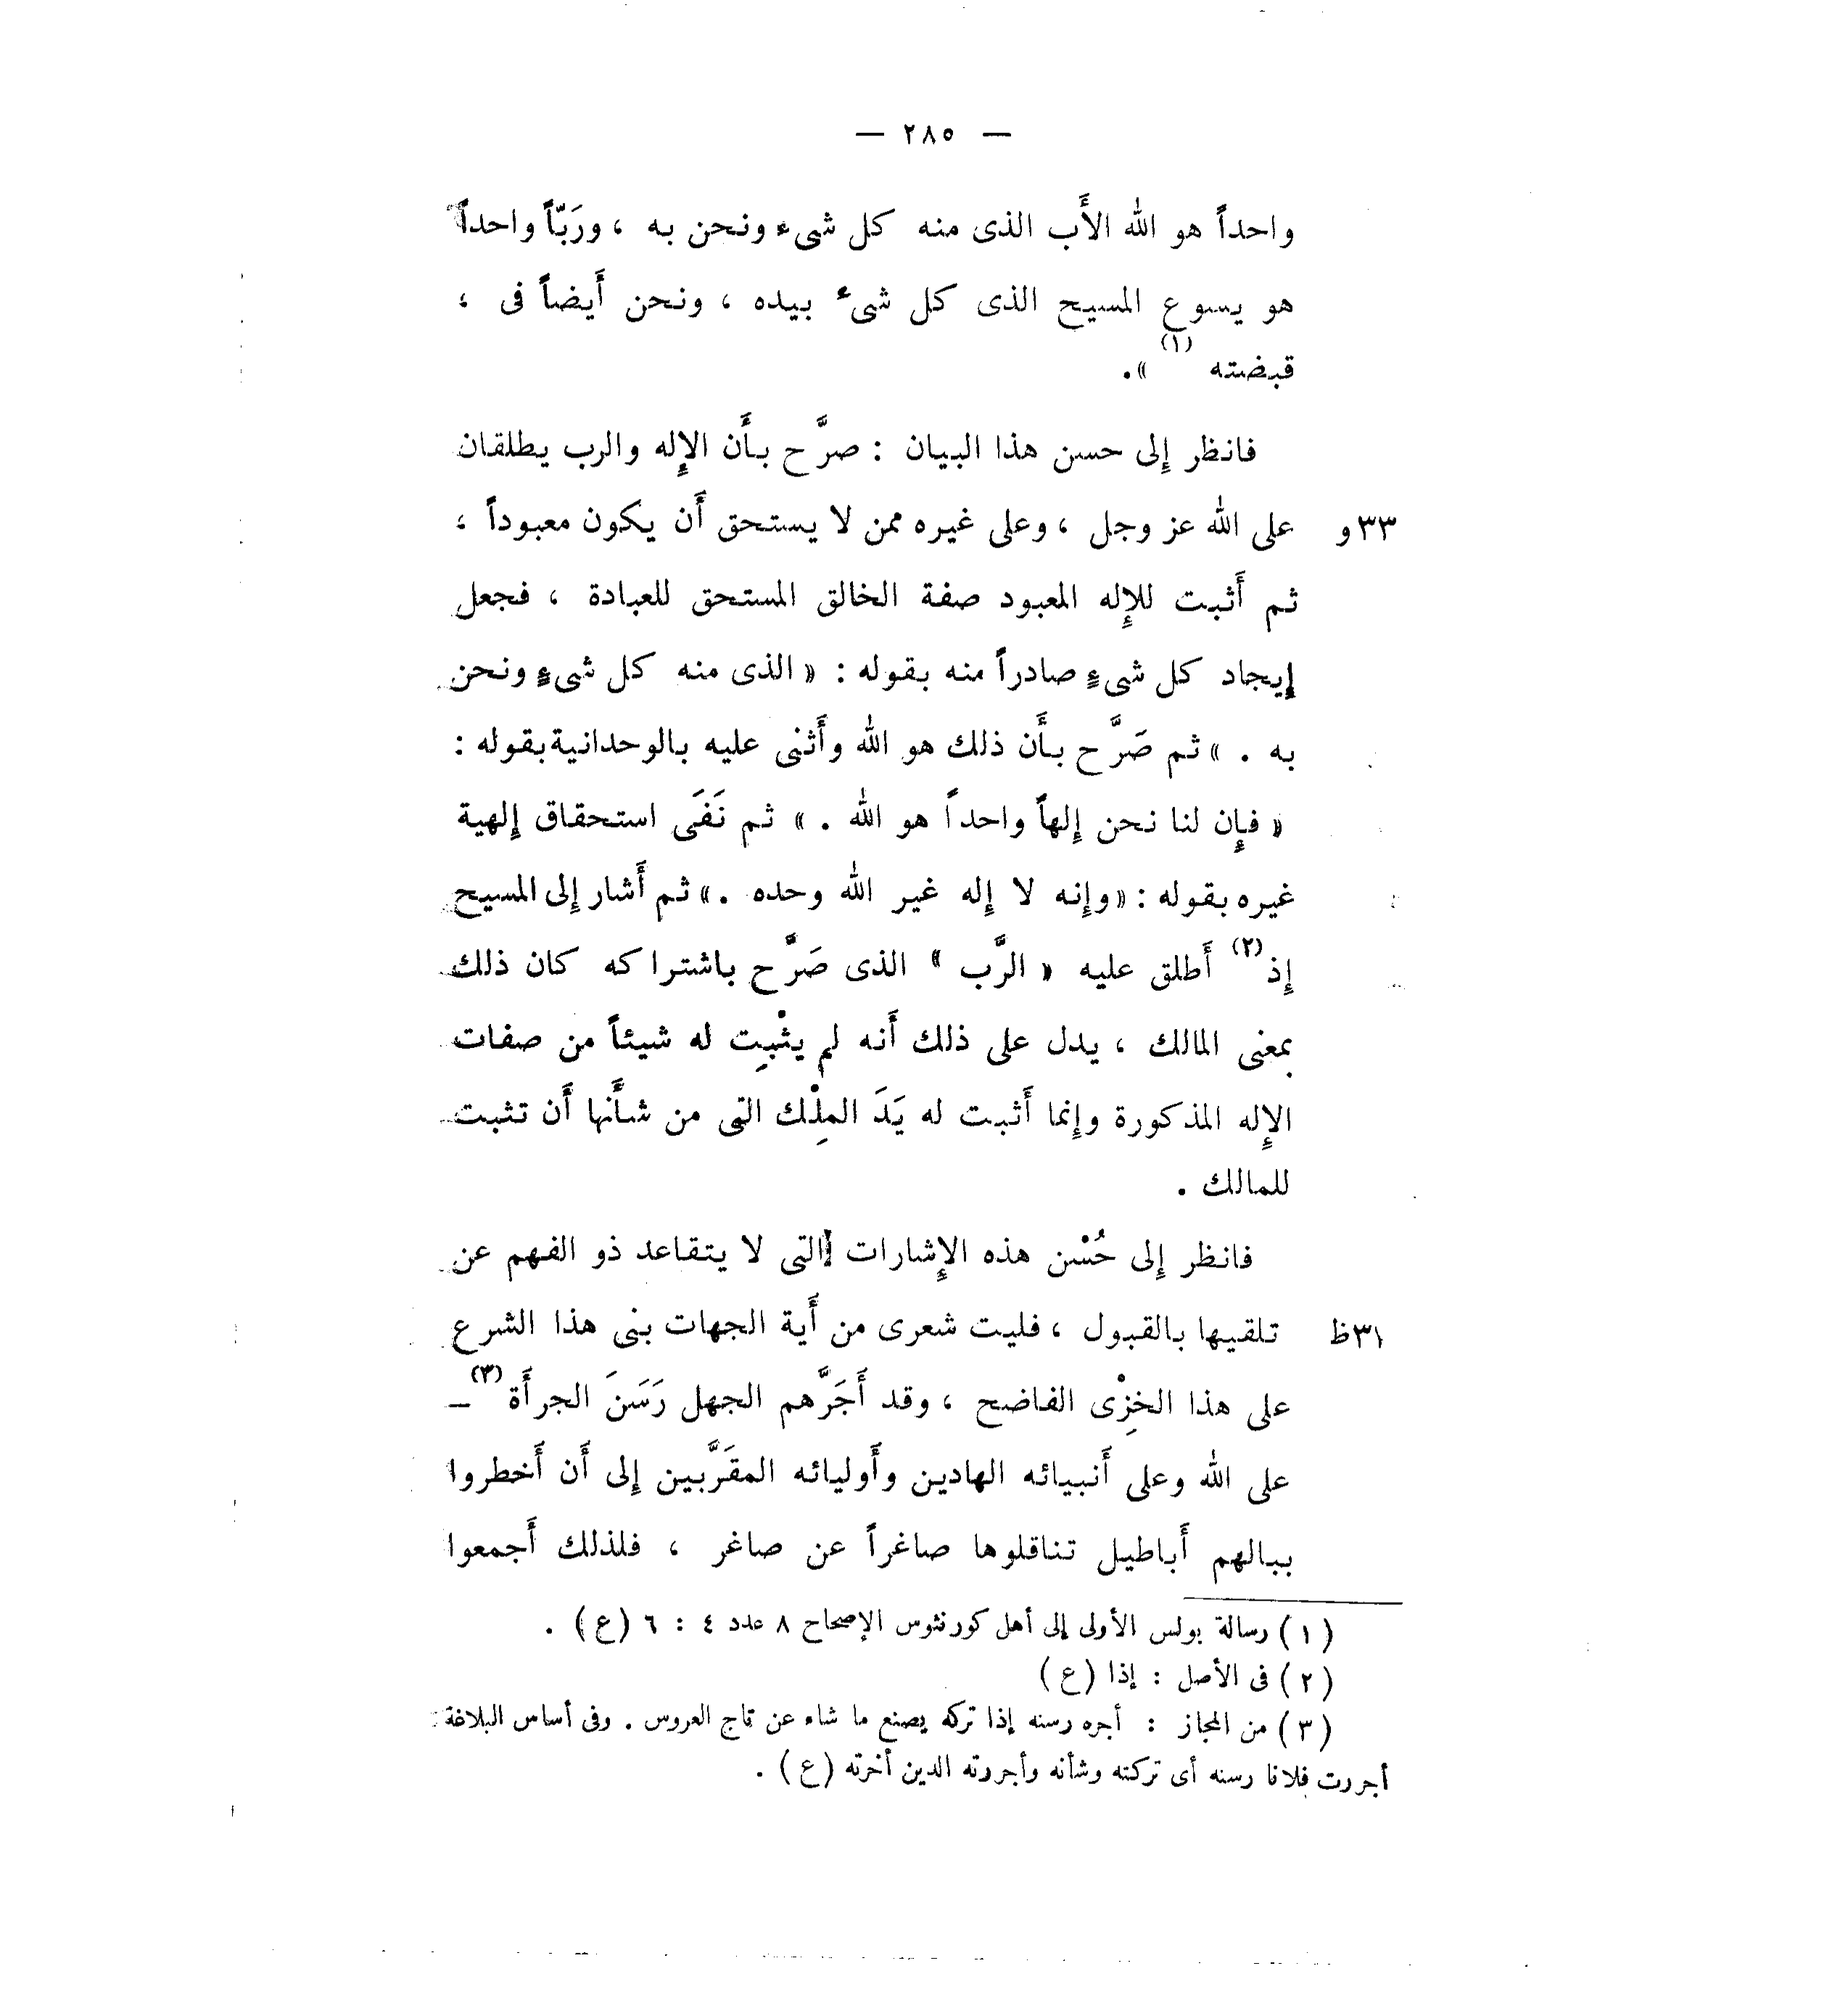 — ٢٨٥ —
واحداً هو الله الأَب الذى منه كل شىء ونحن به ، ورَبّاً واحداً
هو يسوع المسيح الذى كل شىء بيده ، ونحن أَيضاً فى ،
قبضته (١) » .
فانظر إِلى حسن هذا البيان : صرَّح بأَن الإِله والرب يطلقان
٣٣و على الله عز وجل ، وعلى غيره ممن لا يستحق أَن يكون معبوداً ،
ثم أَثبت للإِله المعبود صفة الخالق المستحق للعبادة ، فجعل
إِيجاد كل شىءٍ صادراً منه بقوله : « الذى منه كل شىءٍ ونحن
به . » ثم صَرَّح بأَن ذلك هو الله وأَثنى عليه بالوحدانية بقوله :
« فإِن لنا نحن إِلهاً واحداً هو الله . » ثم نَفَى استحقاق إِلهية
غيره بقوله : « وإِنه لا إِله غير الله وحده . » ثم أَشار إِلى المسيح
إِذ (٢) أَطلق عليه « الرَّب » الذى صَرَّح باشتراكه كان ذلك
بمعنى المالك ، يدل على ذلك أَنه لم يثْبِت له شيئاً من صفات
الإِله المذكورة وإِنما أَثبت له يَدَ المِلْك التى من شأَنها أَن تثبت
للمالك .
فانظر إِلى حُسْن هذه الإِشارات التى لا يتقاعد ذو الفهم عن
٣١ظ تلقيها بالقبول ، فليت شعرى من أَية الجهات بنى هذا الشرع
على هذا الخِزْى الفاضح ، وقد أَجَرَّهم الجهل رَسَنَ الجرأَة (٣) –
على الله وعلى أَنبيائه الهادين وأَوليائه المقَرَّبين إِلى أَن أَخطروا
ببالهم أَباطيل تناقلوها صاغراً عن صاغر ، فلذلك أَجمعوا
( ١ ) رسالة بولس الأولى إلى أهل كورنثوس الإصحاح ٨ عدد ٤ : ٦ (ع) .
( ٢ ) فى الأصل : إذا (ع)
( ٣ ) من المجاز : أجره رسنه إذا تركه يصنع ما شاء عن تاج العروس . وفى أساس البلاغة :
أجررت فلانا رسنه أى تركته وشأنه وأجررته الدين أخرته (ع) .